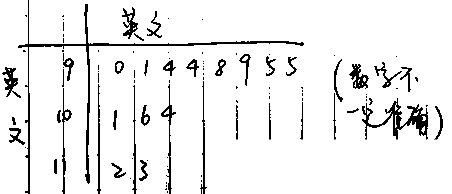 英文
9 0 1 4 4 8 9 5 5
英文
10 1 6 4
11 2 3
(数字不
一定准确)